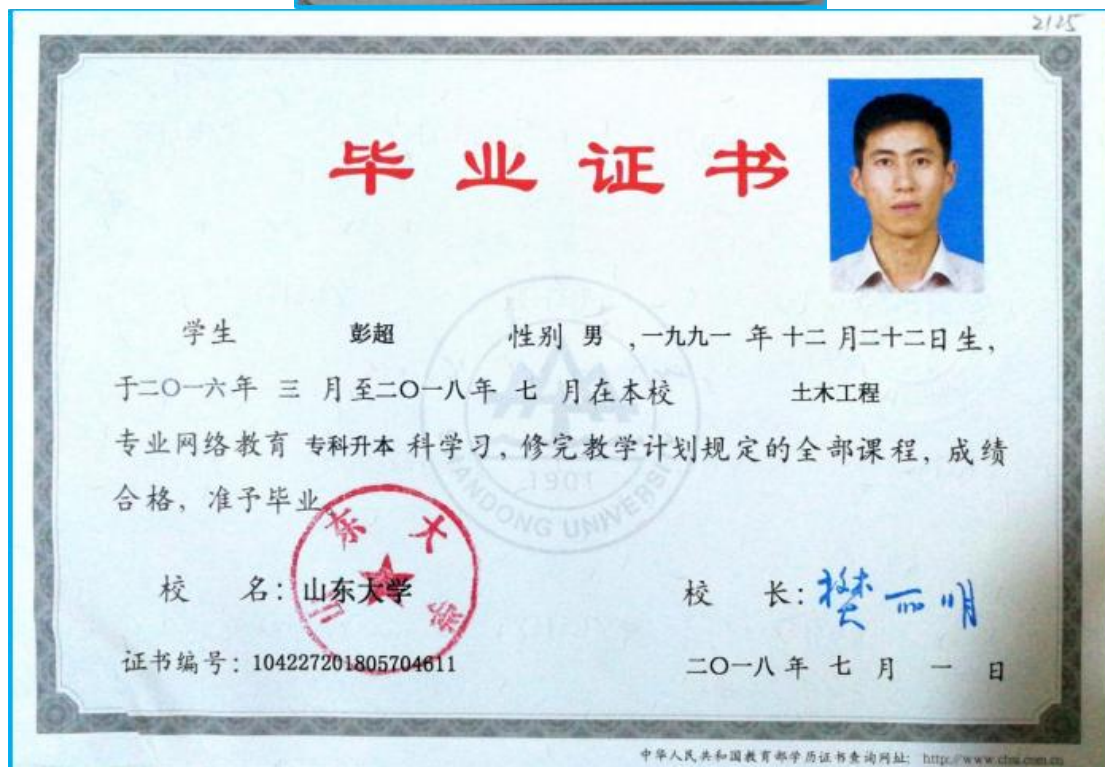 2125
毕业证书
学生 彭超 性别 男 ,一九九一 年 十二 月二十二日生,
于二〇一六年 三 月至二〇一八年 七 月在本校 土木工程
专业网络教育 专科升本 科学习, 修完教学计划规定的全部课程, 成绩
合格, 准予毕业
1901
SHANDONG UNIVERSITY
山东大学
校 名: 山东大学 校 长: 樊丽明
证书编号: 104227201805704611 二〇一八 年 七 月 一 日
中华人民共和国教育部学历证书查询网址: http://www.chsi.com.cn